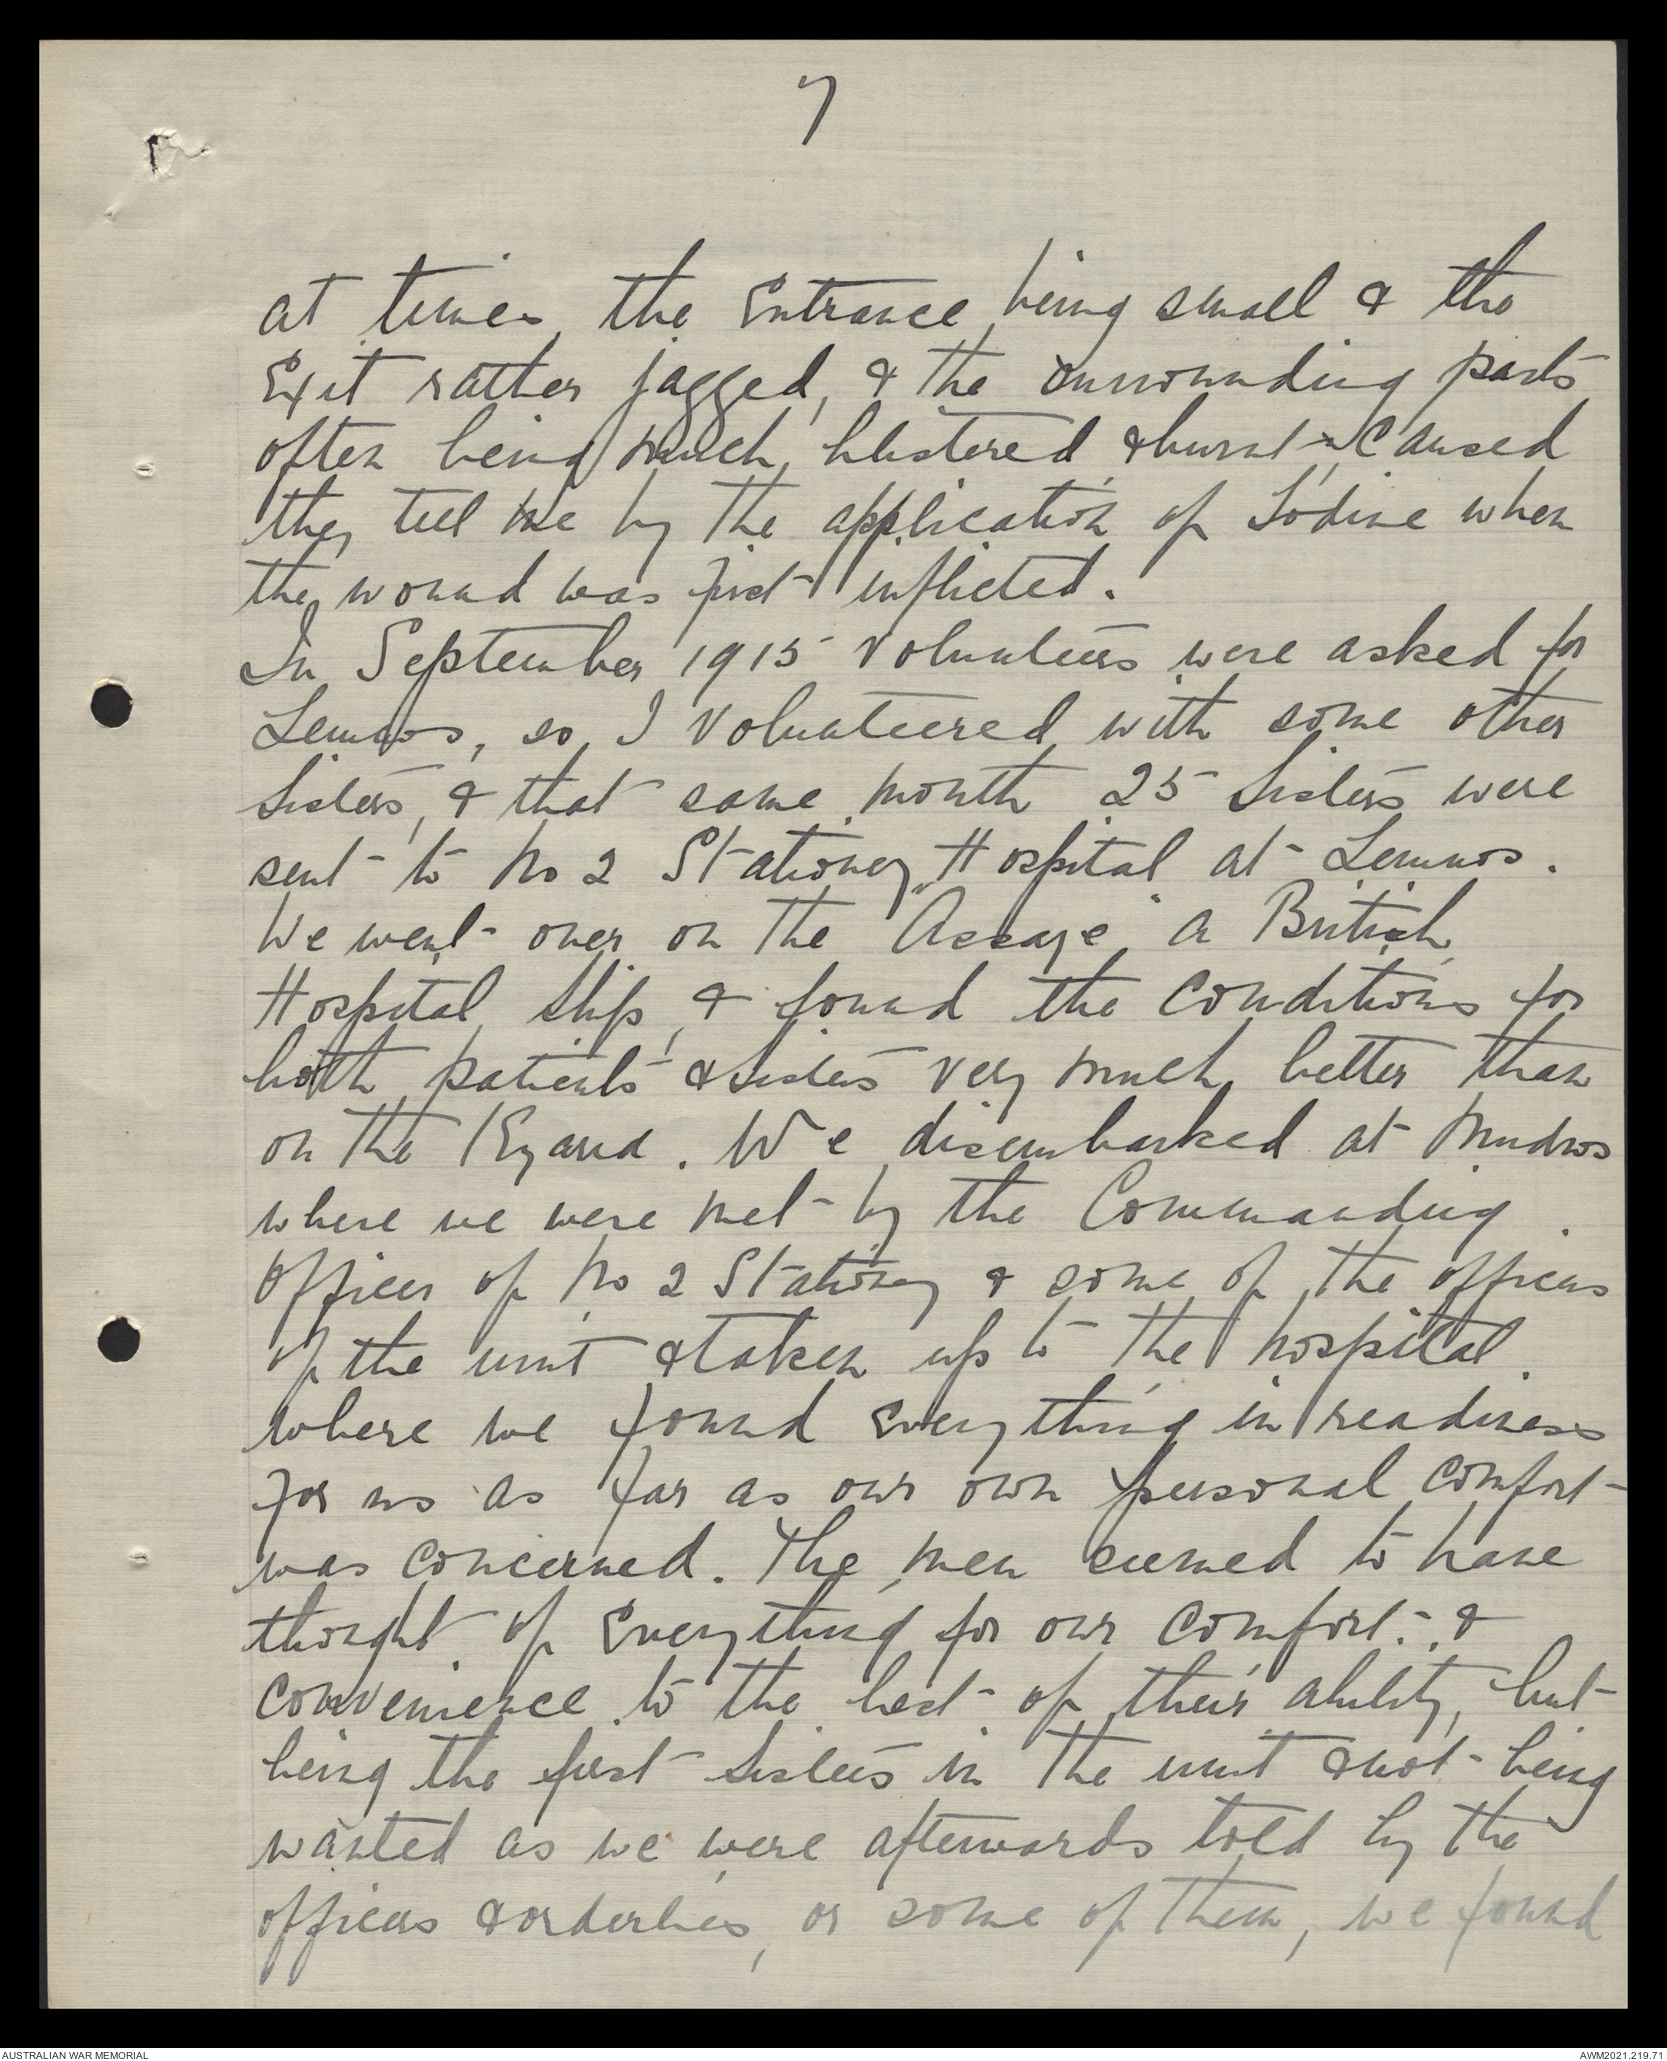 7
at times, the Entrance being small & the
Exit rather jagged, & the surrounding parts
often being much blistered & burnt - caused
they tell me by the application of Iodine when
the wound was first inflicted.
In September 1915 Volunteers were asked for
Lemnos, so I volunteered with some other
Sisters, & that same month 25 Sisters were
sent to No 2 Stationey Hospital at Lemnos.
We went over on the "Assaye" a British
Hospital Ship, & found the conditions for
both patients & Sisters very much better than
on the Kyarra. We disembarked at Mudros
where we were met by the Commanding
Officer of No 2 Stationey & some of the officers
of the unit & taken up to the hospital
where we found Everything in readiness
for us as far as our own personal comfort
was concerned. The men seemed to have
thought of Everything for our comfort &
convenience to the best of their ability, but
being the first Sisters in the unit & not being
wanted as we were afterwards told by the
officers & orderlies, or some of them, we found
AUSTRALIAN WAR MEMORIAL
AWM2021.219.71